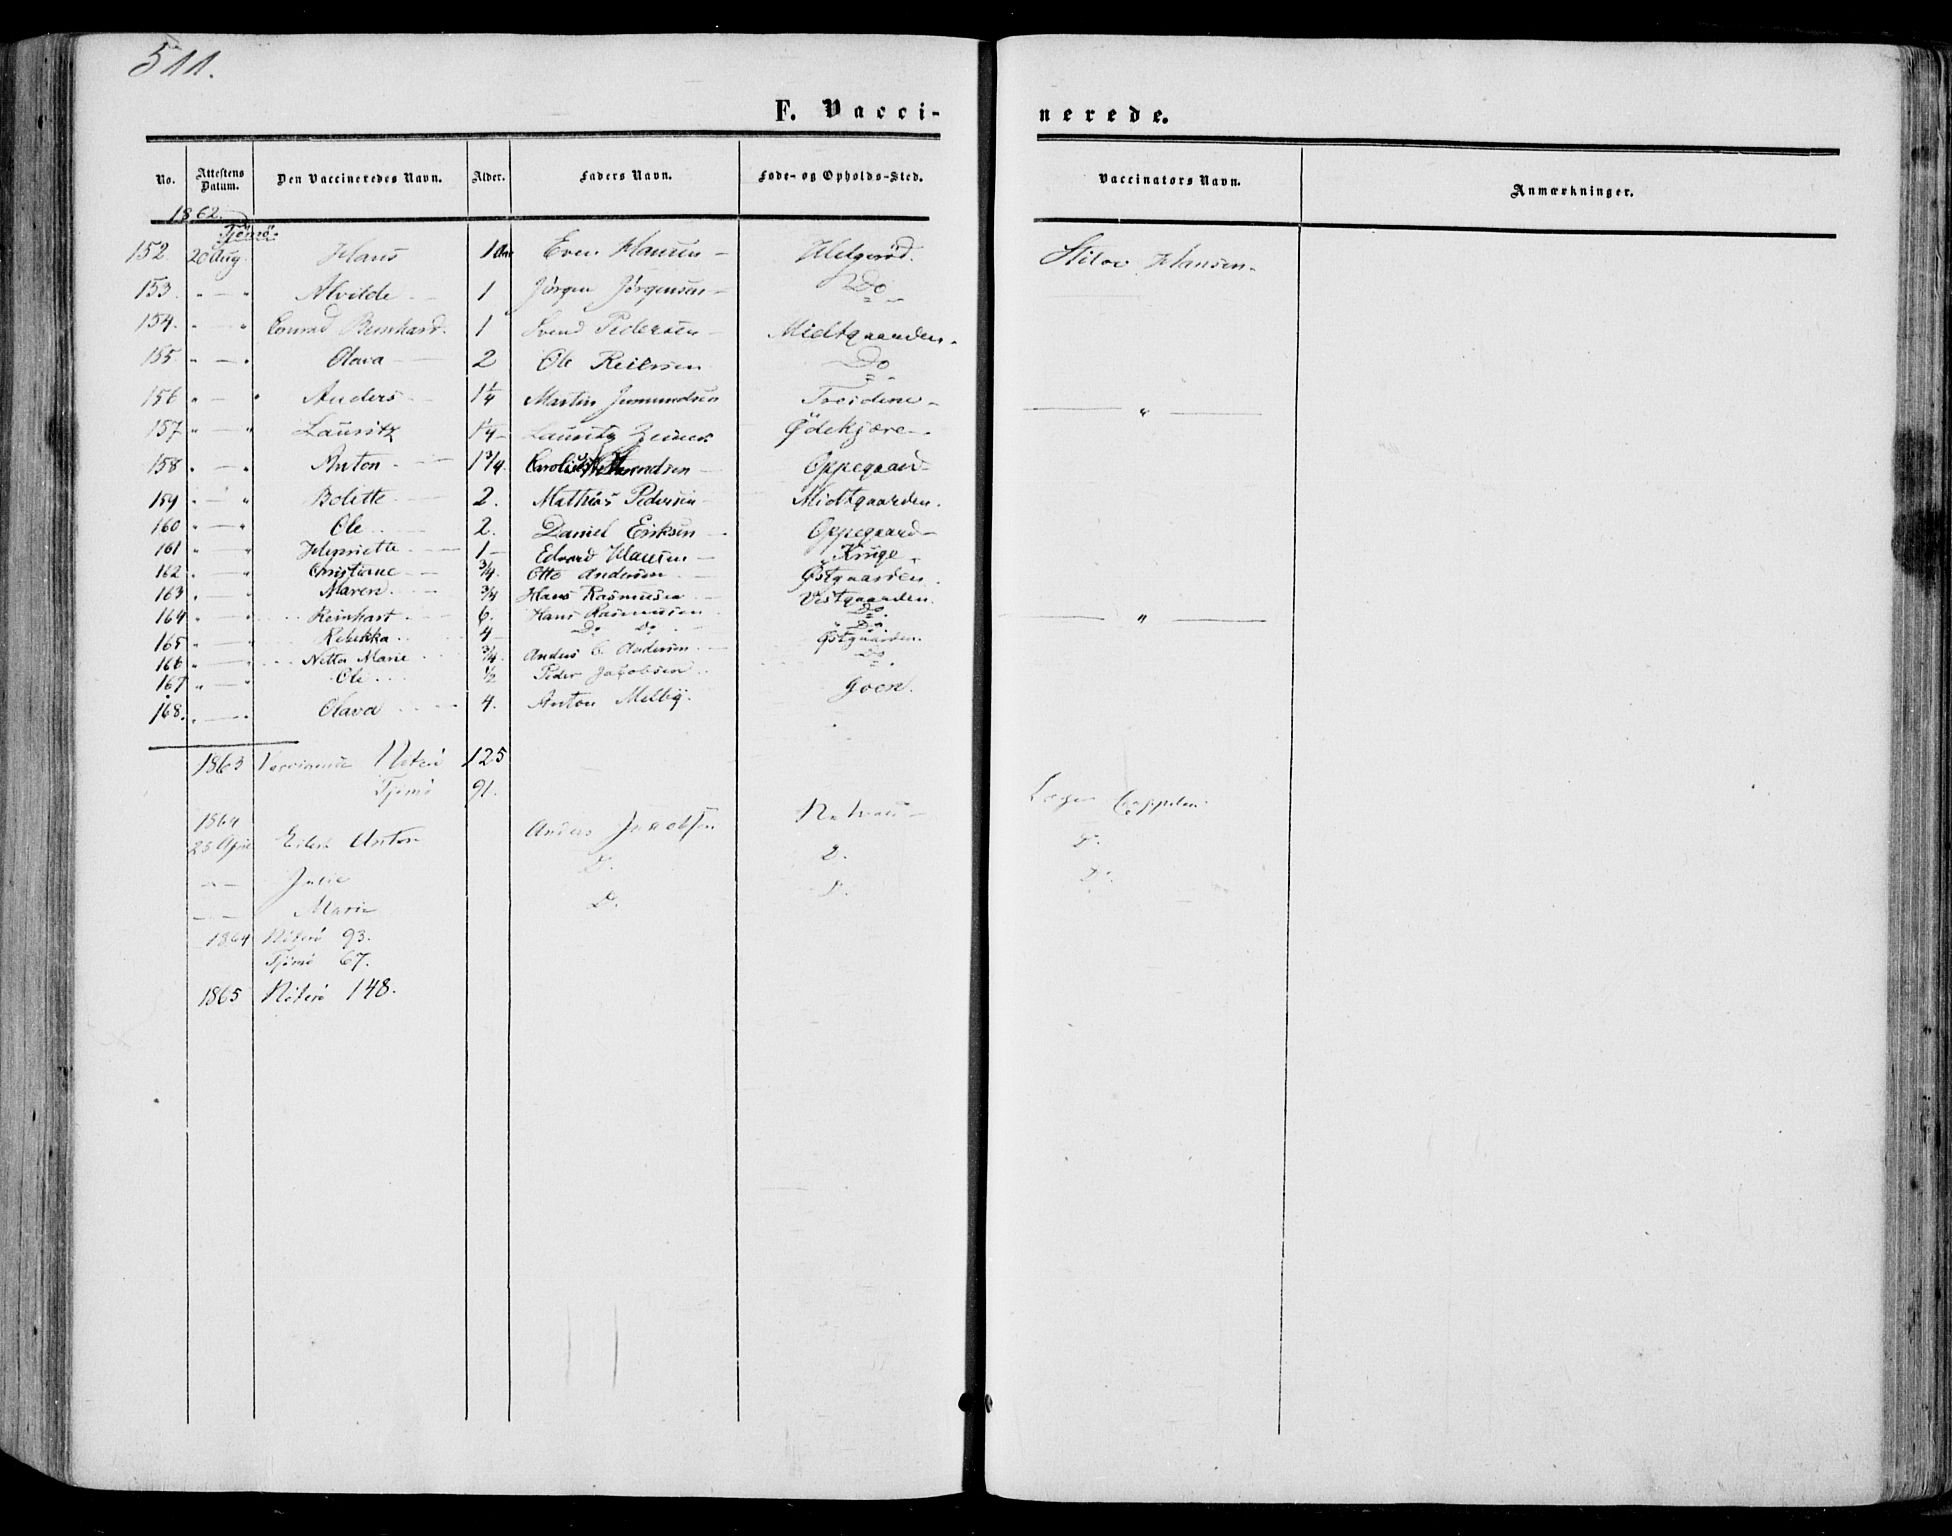 511.
F. Vacci-
nerede.
No. Attestens Datum. Den Vaccineredes Navn. Alder. Faders Navn. Føde- og Opholds-Sted. Vaccinators Navn. Anmærkninger.
1862.
Tjömö.
152. 20 Aug. Hans 1 Even Hansen - Helgeröd. Hansen.
153. " — " Alvilde 1 Jörgen Jörgensen - Do
154. " — " Conrad Bernhard. 1 Svend Pedersen - Midtgaarden.
155 " — " Olava 2 Ole Reiersen Do
156 " — " Anders 1 1/4 Martin — " —
157 " — " Lauritz 1 1/4 - Lauritz Ödekjære -
158 " — " Anton 1 3/4. Oppegaard
159 " — " Bolette 2. Mathias Pedersen Midtgaarden.
160 " — " Ole 2. Daniel Eriksen Oppegaard -
161 " — " Henriette 1 - Edvard Hansen - Kruge -
162 " — " Christiane 3/4. Otto Andersen Østgaarden.
163 " — " Maren 3/4 Hans Rasmusen Vestgaarden.
164 " — " Reinhart 6. Hans Rasmusen Do — " —
165 " — " Rebekka 4 - Do Do Do
166 " — " Netta Marie 3/4. Anders C. Andersen Østgaarden.
167 " — " Ole 1/2 Peder Jacobsen Do
168. " — " Olava 4. Anton Melby. Goen.
1863 Vaccinerede Nöterö 125
Tjömö 91.
1864
25 April Eilert Anton Anders Jacobsen Læge Cappelen
— — Julie D. D. D.
— — Marie D. D. D.
1864 Nöterö 93.
Tjömö 67.
1865 Nöterö 148.